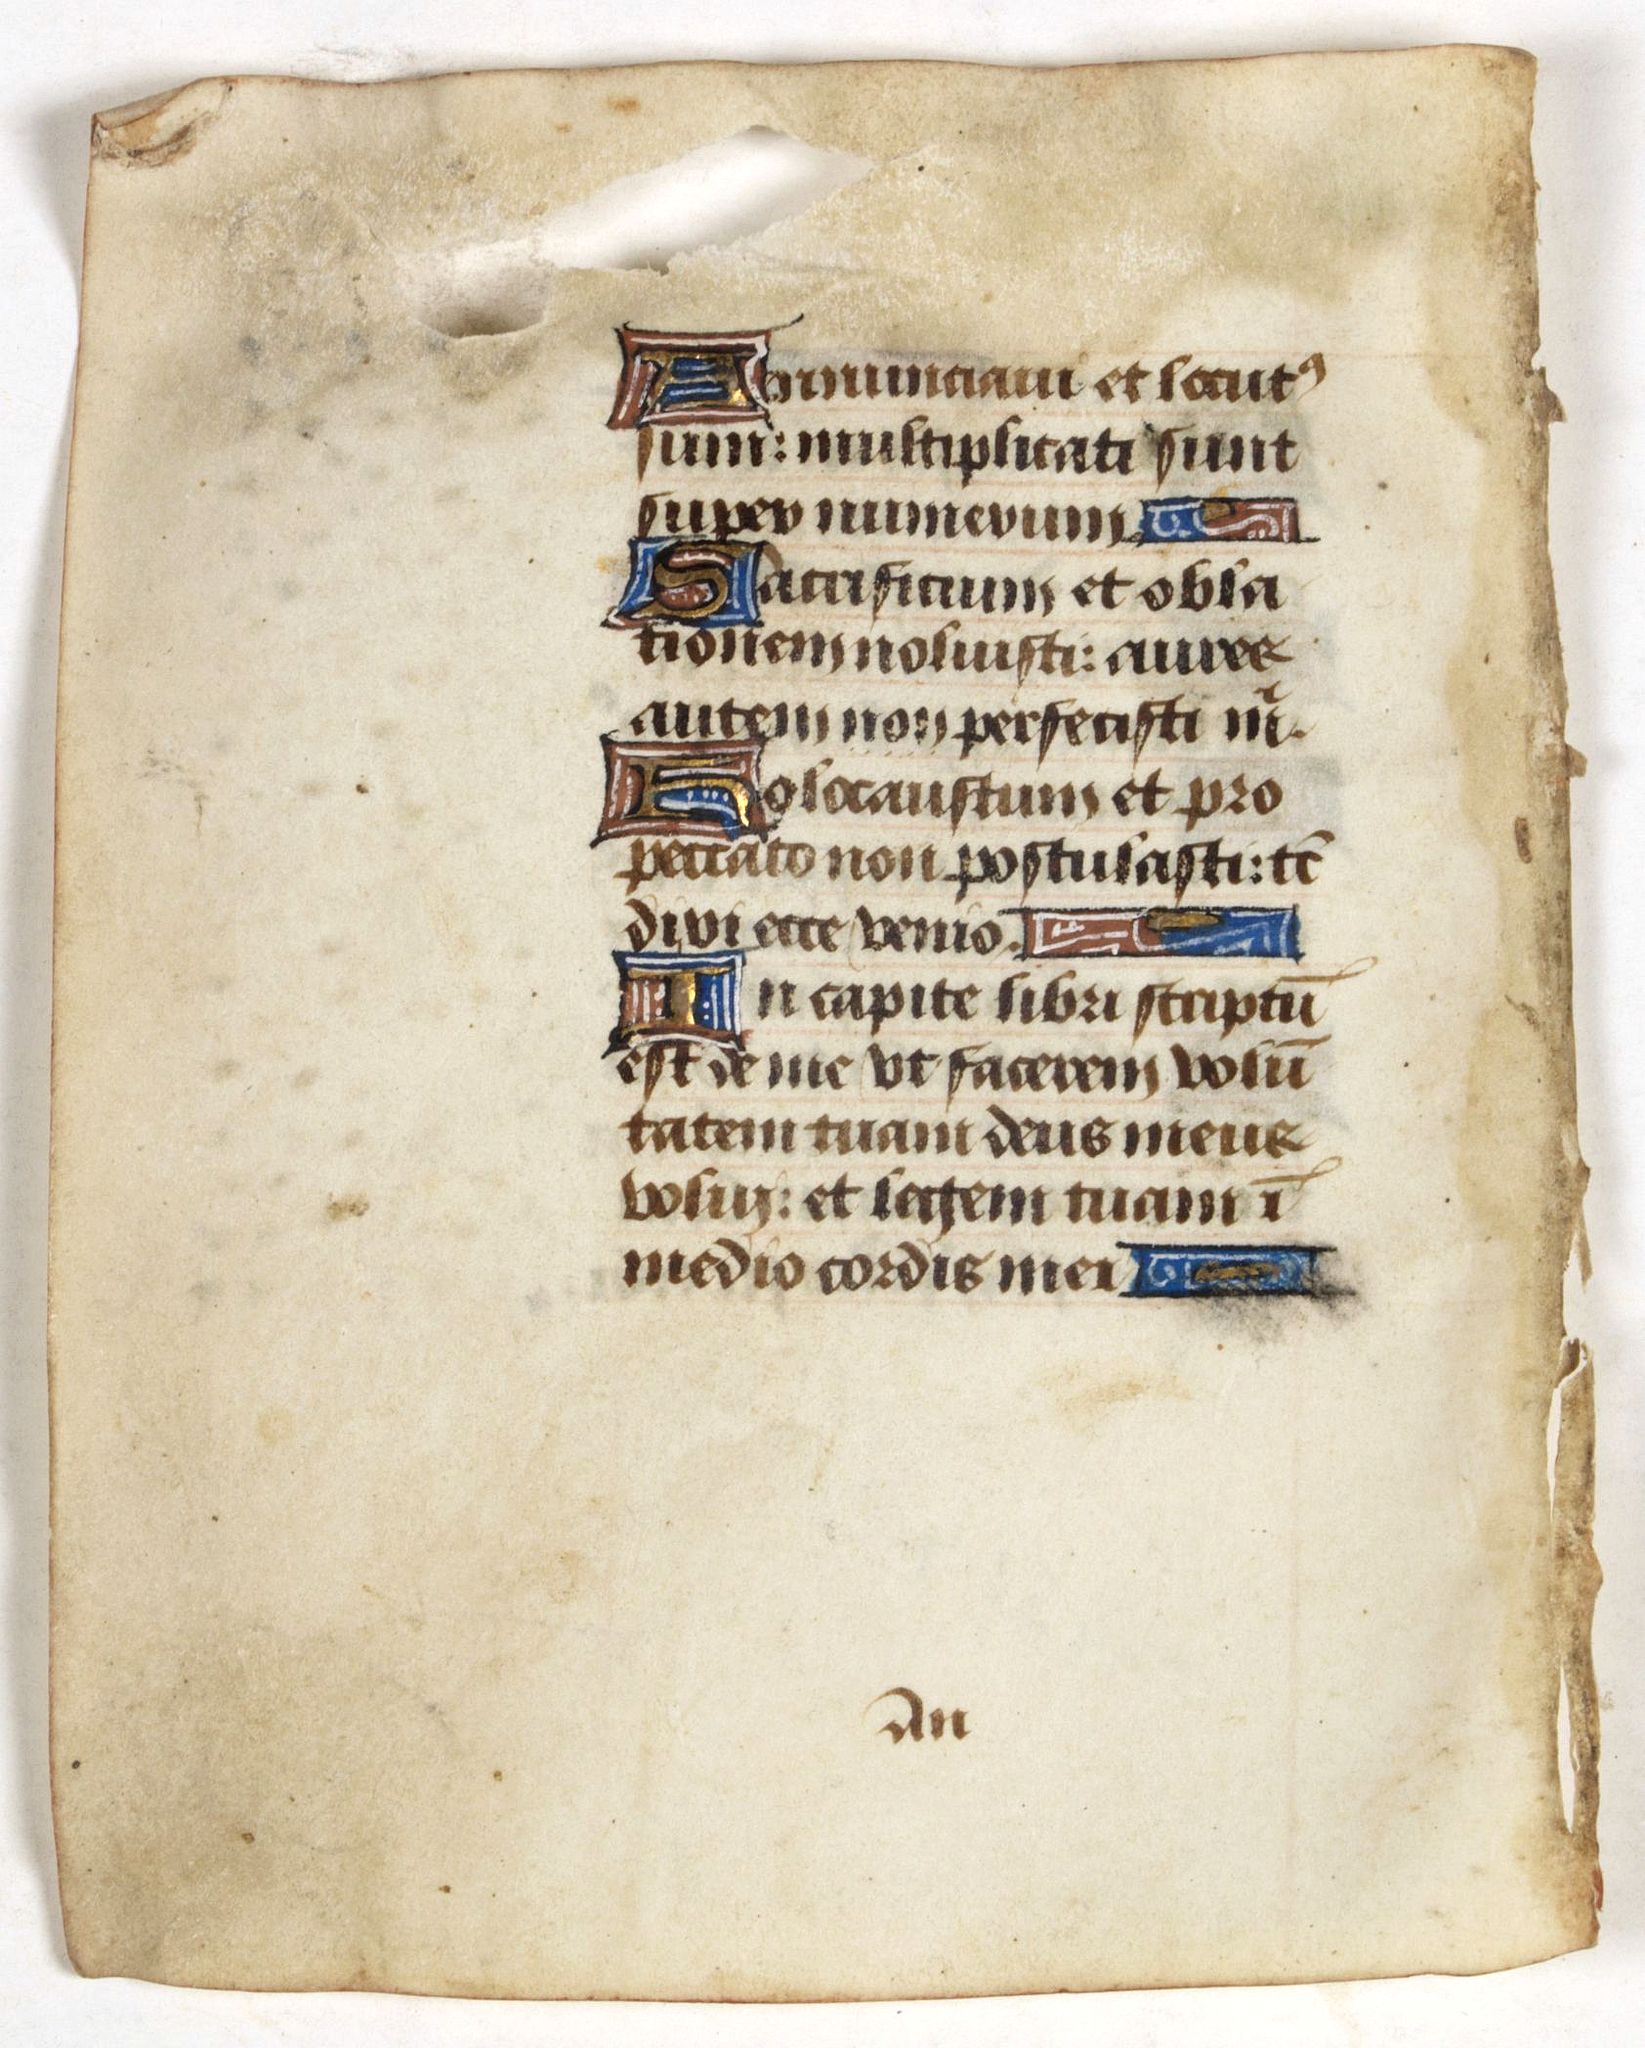 Annunciaui et locutꝰ
sum: multiplicati sunt
super numerum
Sacrificium et obla
tionem noluisti: aures
autem non perfecisti m̅.
Holocaustum et pro
peccato non postulasti: tc̅
dixi ecce venio.
In capite libri scriptū
est de me vt facerem volū
tatem tuam deus meus
volui: et legem tuam ī
medio cordis mei
An